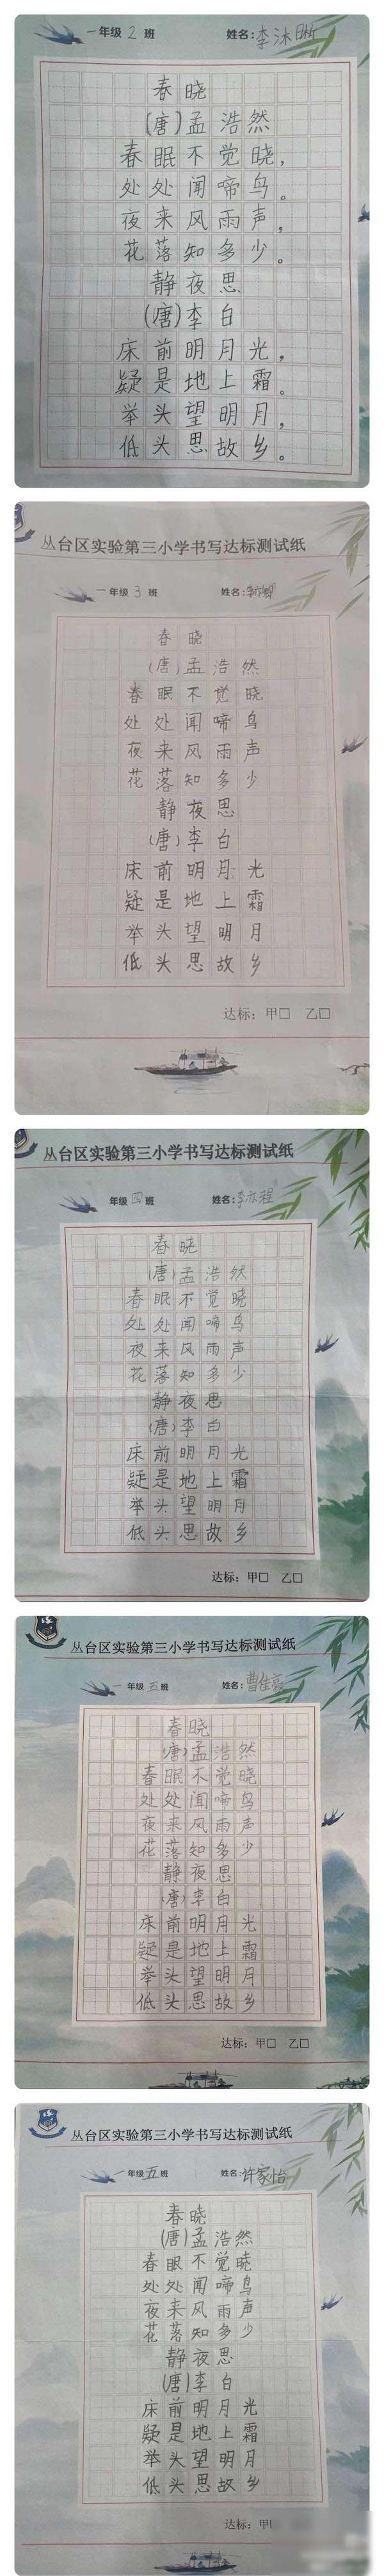 一年级 2 班 姓名:李沐晰
春晓
(唐)孟浩然
春眠不觉晓,
处处闻啼鸟。
夜来风雨声,
花落知多少。
静夜思
(唐)李白
床前明月光,
疑是地上霜。
举头望明月,
低头思故乡。
丛台区实验第三小学书写达标测试纸
一年级 3 班 姓名:
春晓
(唐)孟浩然
春眠不觉晓
处处闻啼鸟
夜来风雨声
花落知多少
静夜思
(唐)李白
床前明月光
疑是地上霜
举头望明月
低头思故乡
达标:甲□ 乙□
丛台区实验第三小学书写达标测试纸
年级 四 班 姓名:李亦程
春晓
(唐)孟浩然
春眠不觉晓
处处闻啼鸟
夜来风雨声
花落知多少
静夜思
(唐)李白
床前明月光
疑是地上霜
举头望明月
低头思故乡
达标:甲□ 乙□
丛台区实验第三小学书写达标测试纸
一年级 五 班 姓名:曹佳亮
春晓
(唐)孟浩然
春眠不觉晓
处处闻啼鸟
夜来风雨声
花落知多少
静夜思
(唐)李白
床前明月光
疑是地上霜
举头望明月
低头思故乡
达标:甲□ 乙□
丛台区实验第三小学书写达标测试纸
一年级 五 班 姓名:许家怡
春晓
(唐)孟浩然
春眼不觉晓
处处闻啼鸟
夜来风雨声
花落知多少
静夜思
(唐)李白
床前明月光
疑是地上霜
举头望明月
低头思故乡
达标:甲